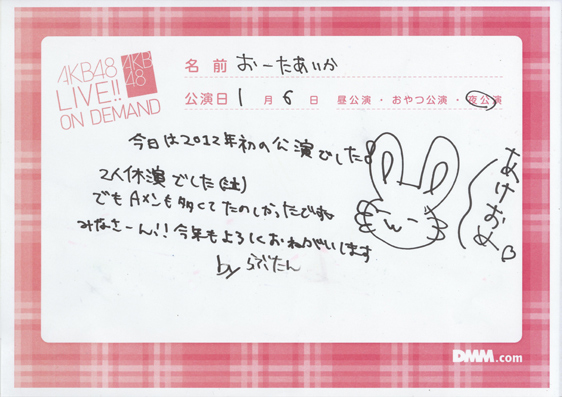 AKB48
LIVE!!
ON DEMAND
AKB
48
名前 おーたあいか
公演日 1月6日 昼公演・おやつ公演・夜公演
今日は2012年初の公演でした
2人休演でした(泣)
でもAメンも多くてたのしかったです
みなさーん!!今年もよろしくおねがいします
by らぶたん
あけおめ
DMM.com